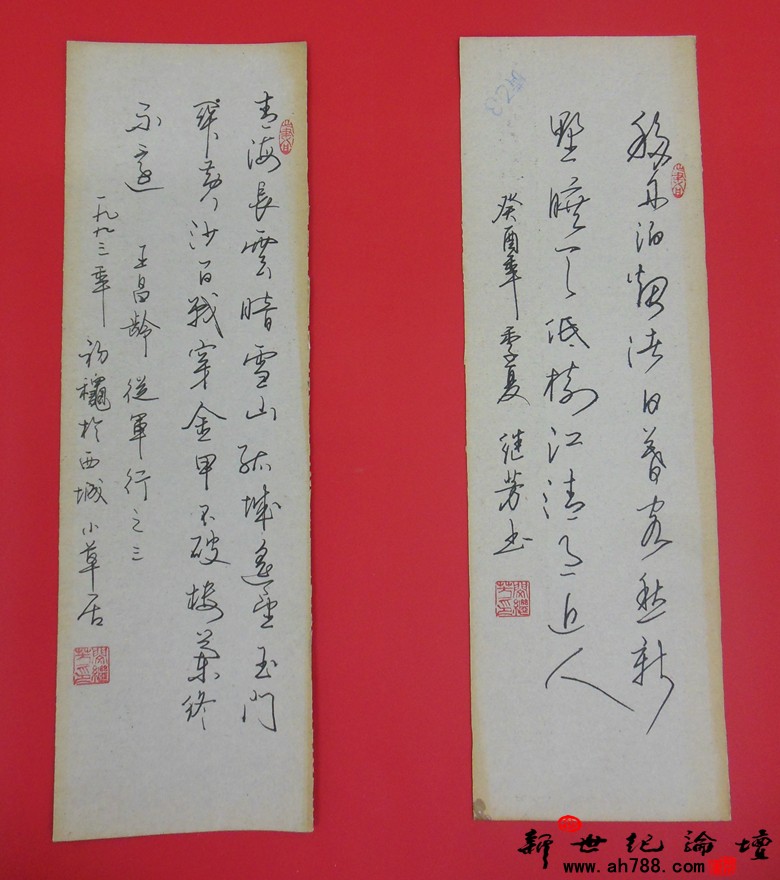 移舟泊烟渚日暮客愁新
野曠天低樹江清月近人
癸酉年季夏 继芳书
青海長雲暗雪山孤城遙望玉門
関黄沙百戰穿金甲不破楼蘭終
不還 王昌齡 從軍行之三
一九九三年初穐於西城小草居
新世纪論壇
www.ah788.com